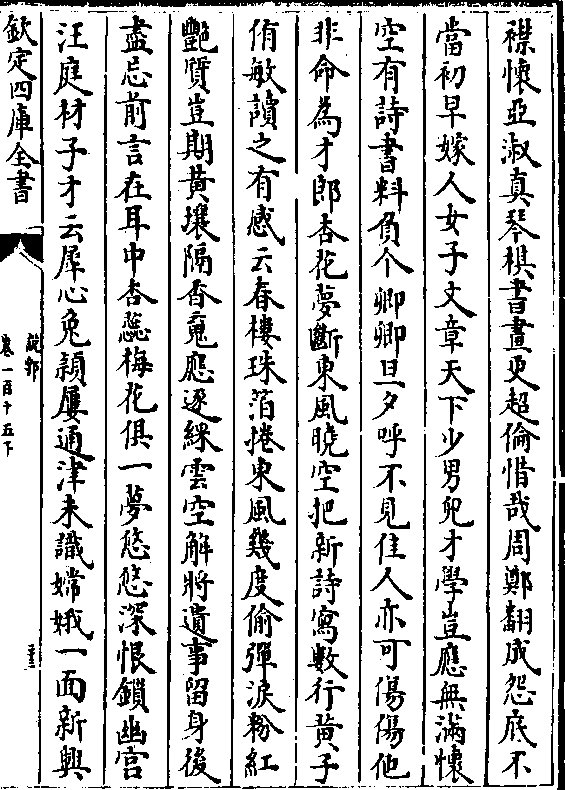 襟懷亞淑真琴棋書畫更超倫惜哉周鄭翻成怨底不
當初早嫁人女子文章天下少男兒才學豈應無滿懷
空有詩書料負个卿卿旦夕呼不見佳人亦可傷傷他
非命為才郎杏花夢斷東風曉空把新詩寫數行黃子
侑敏讀之有感云春樓珠箔捲東風幾度偷彈淚粉紅
艷質豈期黃壤隔香䰟應逐綵雲空解將遺事留身後
盡忘前言在耳中杏蕊梅花俱一夢悠悠深恨鎖幽宮
汪庭材子才云犀心兔穎屢通津未識嫦娥一面新興
欽定四庫全書
說郛
卷一百十五下